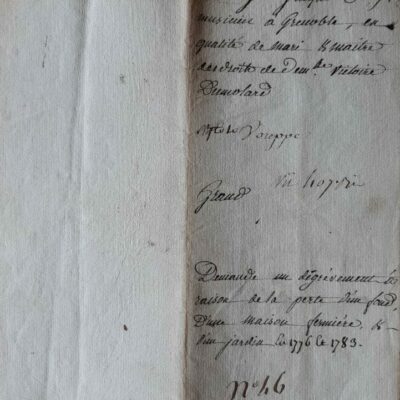 musicien à Grenoble, en
qualité de mari & maitre
des droits de dem.lle Victoire
Dumolard
Voreppe
Grand
Demande un dégrévement à
raison de la perte d'un fond,
d'une maison fermière &
d'un jardin en 1776 & 1783.
n° 46